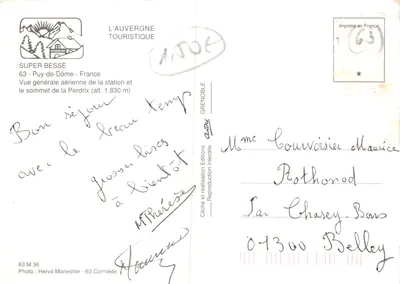 L'AUVERGNE
TOURISTIQUE
SUPER BESSE
63 - Puy-de-Dôme - France
Vue générale aérienne de la station et
le sommet de la Perdrix (alt. 1 830 m)
1,50€
Imprimé en France
(63)
*
Bon séjour
avec le beau temps
grosses bises
à bientôt
M Thérèse
63 M 36
Photo : Hervé Monestier - 63 Cournon
Cliché et réalisation Editions
Reproduction interdite
GRENOBLE
Mme Courvoisier Maurice
Rothonod
Par Chazey-Bons
01300 Belley